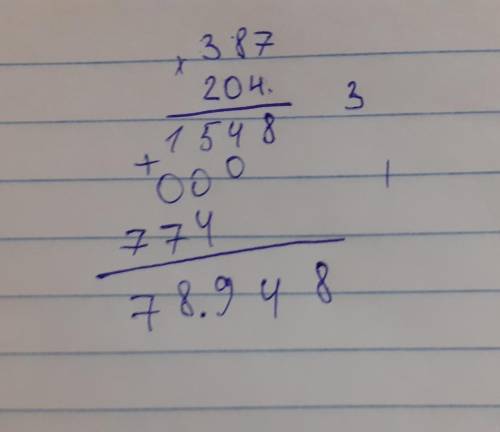 × 387
204. 3
1548
+ 000 1
774
78.948